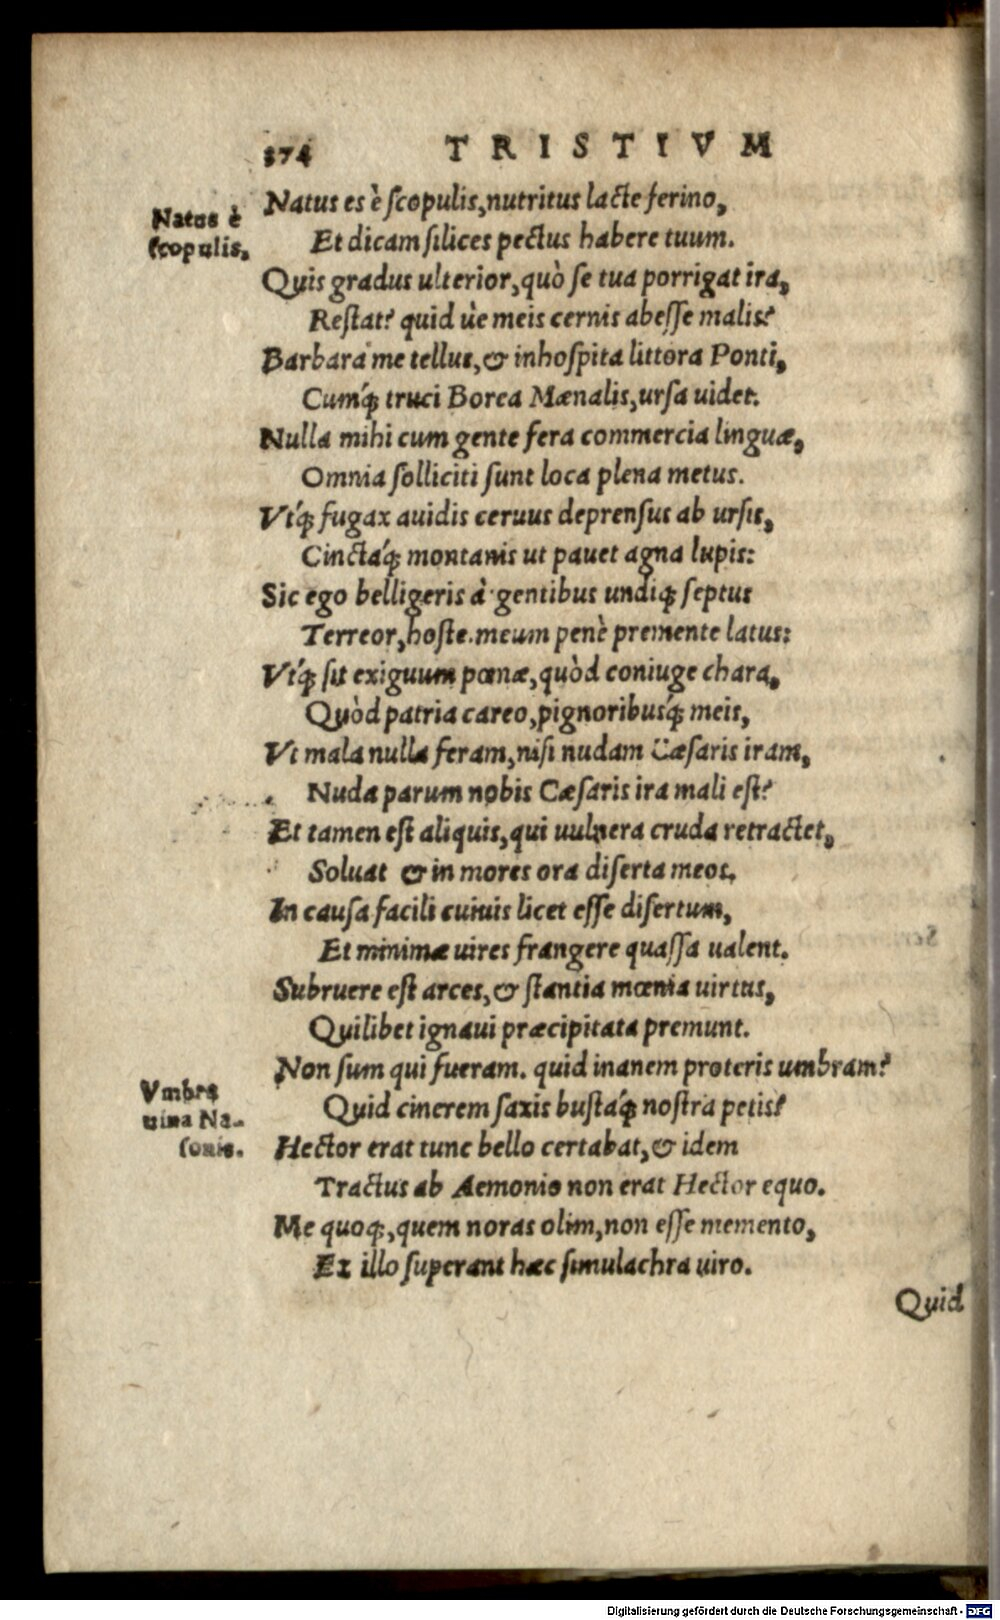 374 TRISTIVM
Natus è
ſcopulis.
Natus es è ſcopulis, nutritus lacte ferino,
Et dicam ſilices pectus habere tuum.
Quis gradus ulterior, quò ſe tua porrigat ira,
Reſtat? quid ùe meis cernis abeſſe malis?
Barbara me tellus, & inhoſpita littora Ponti,
Cumq́; truci Borea Mænalis, urſa uidet.
Nulla mihi cum gente fera commercia linguæ,
Omnia ſolliciti ſunt loca plena metus.
Vtq́; fugax auidis ceruus deprenſus ab urſis,
Cinctáq; montanis ut pauet agna lupis:
Sic ego belligeris à gentibus undiq; ſeptus
Terreor, hoſte meum penè premente latus:
Vtq́; ſit exiguum pœnæ, quòd coniuge chara,
Quòd patria careo, pignoribusq́; meis,
Vt mala nulla feram, niſi nudam Cæſaris iram,
Nuda parum nobis Cæſaris ira mali eſt?
Et tamen eſt aliquis, qui uulnera cruda retractet,
Soluat & in mores ora diſerta meos.
In cauſa facili cuiuis licet eſſe diſertum,
Et minimæ uires frangere quaſſa ualent.
Subruere eſt arces, & ſtantia mœnia uirtus,
Quilibet ignaui præcipitata premunt.
Non ſum qui fueram. quid inanem proteris umbram?
Vmbra
uiua Na-
ſonis.
Quid cinerem ſaxis buſtáq; noſtra petis?
Hector erat tunc bello certabat, & idem
Tractus ab Aemonio non erat Hector equo.
Me quoq;, quem noras olim, non eſſe memento,
Ex illo ſuperant hæc ſimulachra uiro.
Quid
Digitalisierung gefördert durch die Deutsche Forschungsgemeinschaft - DFG